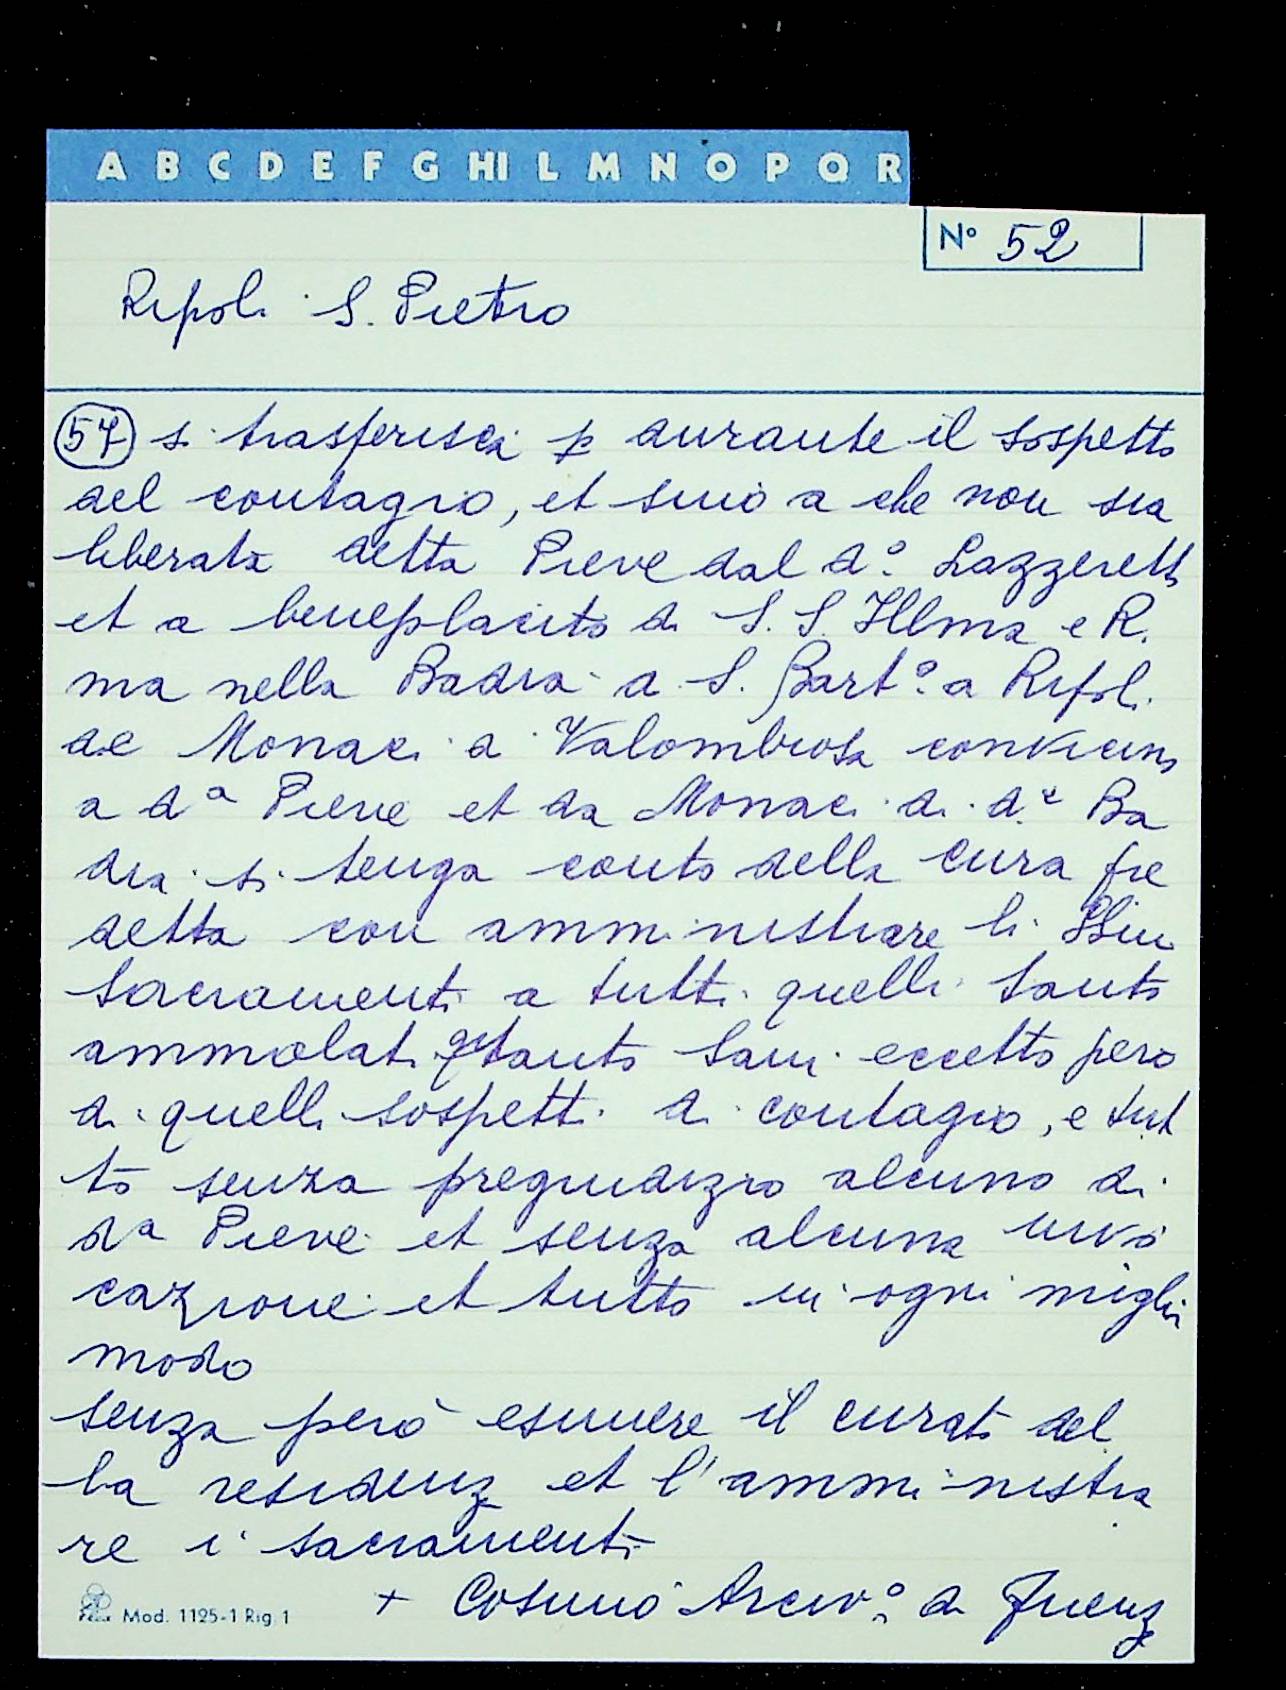 A B C D E F G HI L M N O P Q R
N° 52
Ripoli S. Pietro
57 si trasferisca p durante il sospetto
del contagio, et sino a che non sia
liberata detta Pieve dal d.° Lazzeretto
et a beneplacito di S. S. Illma e R.
ma nella Badia di S. Bart.° a Ripoli
de Monaci di Valombrosa convicino
a d.a Pieve et da Monaci di d.e Ba
dia si tenga conto della cura pre
detta con amministrare li SSmi
Sacramenti a tutti quelli tanto
ammolati qto tanto sani eccetto pero
di quelli sospetti di contagio, e tut
to senza pregiudizio alcuno di
da Pieve et senza alcuna
cazione et tutto in ogni miglio
modo
senza però esimere il curato del
la residenz et l'amministra
re i sacramenti
+ Cosimo Arciv.° di Firenz
Mod. 1125-1 Rig. 1